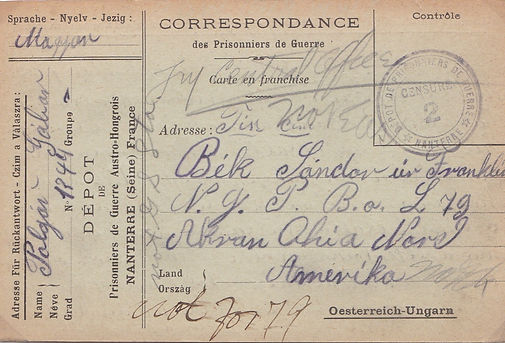 Sprache - Nyelv - Jezig :
Magyar
CORRESPONDANCE
des Prisonniers de Guerre
Carte en franchise
Contrôle
DÉPOT DE PRISONNIERS DE GUERRE
CENSURE
2
NANTERRE
Try Central Office
Adresse :
Bék Sándor úr Franklin
N. G. P. Bo. L 79
Akran Ohia Nord
Amerika
Land
Ország
not for 79
Oesterreich-Ungarn
Adresse Für Rückantwort - Czim a Válaszra :
Name
Néve
Grad
Polgár Gábian
N° 1849 Groupe
DÉPOT
DE
Prisonniers de Guerre Austro-Hongrois
NANTERRE (Seine) France